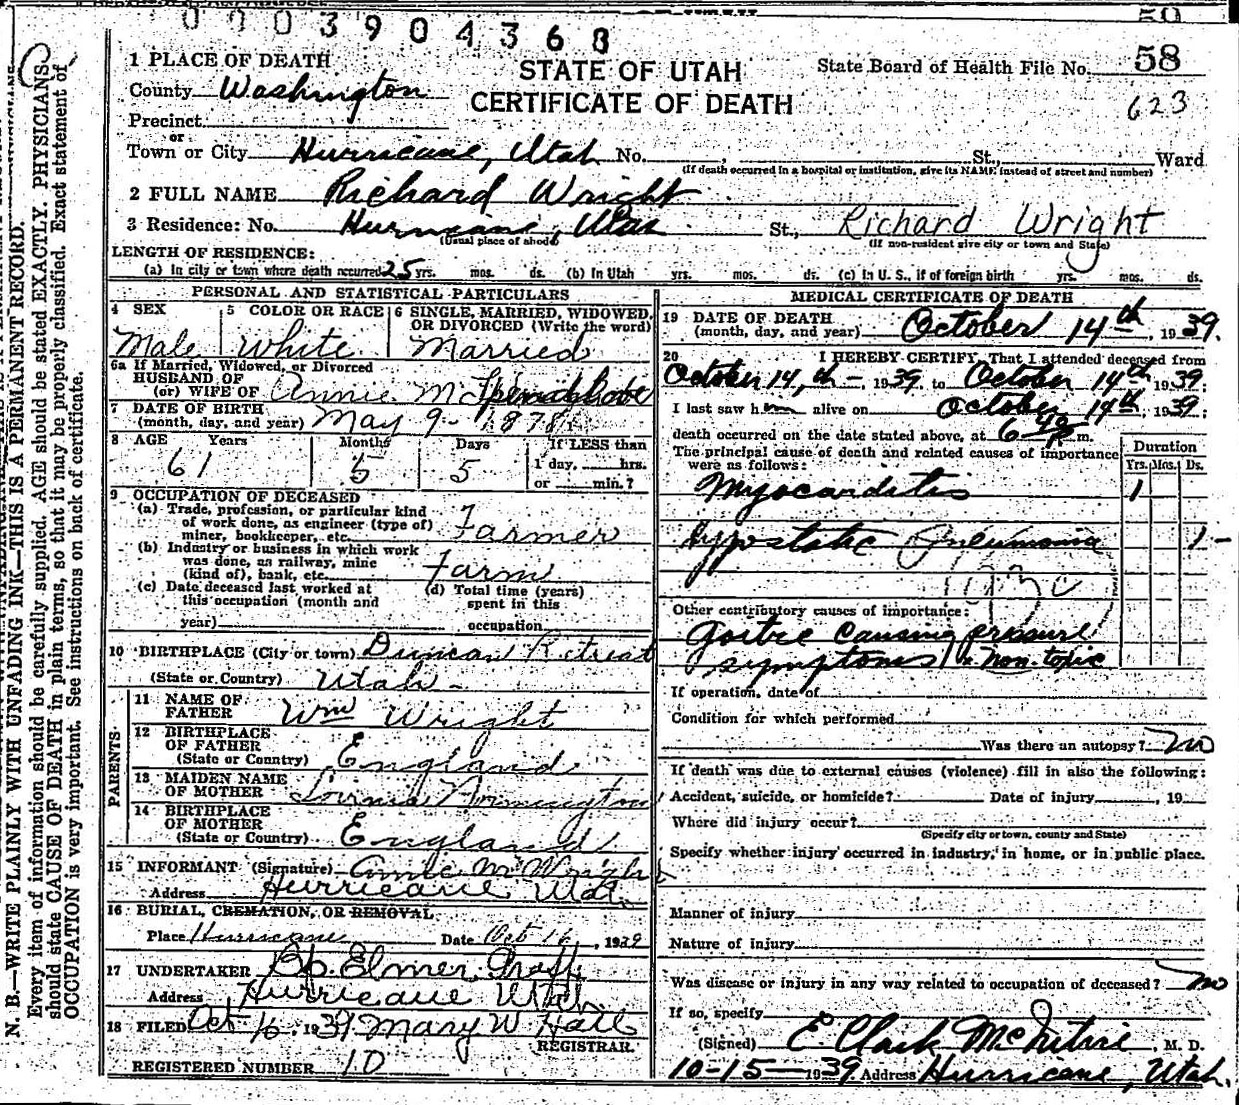 0003904368
50
STATE OF UTAH
CERTIFICATE OF DEATH
State Board of Health File No. 58
623
1 PLACE OF DEATH
County Washington
Precinct
or
Town or City Hurricane, Utah No. , St., Ward
(If death occurred in a hospital or institution, give its NAME instead of street and number)
2 FULL NAME Richard Wright
3 Residence: No. Hurricane, Utah St., Richard Wright
(Usual place of abode) (If non-resident give city or town and State)
LENGTH OF RESIDENCE:
(a) In city or town where death occurred 25 yrs. mos. ds. (b) In Utah yrs. mos. ds. (c) In U. S., if of foreign birth yrs. mos. ds.
PERSONAL AND STATISTICAL PARTICULARS
4 SEX
Male
5 COLOR OR RACE
White
6 SINGLE, MARRIED, WIDOWED, OR DIVORCED (Write the word)
Married
6a If Married, Widowed, or Divorced
HUSBAND OF
(or) WIFE OF Annie M.
7 DATE OF BIRTH
(month, day, and year) May 9- 1878
8 AGE Years Months Days If LESS than
61 5 5 1 day, hrs.
or min.?
9 OCCUPATION OF DECEASED
(a) Trade, profession, or particular kind
of work done, as engineer (type of)
miner, bookkeeper, etc. Farmer
(b) Industry or business in which work
was done, as railway, mine
(kind of), bank, etc. Farm
(c) Date deceased last worked at
this occupation (month and
year)
(d) Total time (years)
spent in this
occupation
10 BIRTHPLACE (City or town) Duncan Retreat
(State or Country) Utah-
PARENTS
11 NAME OF
FATHER Wm Wright
12 BIRTHPLACE
OF FATHER
(State or Country) England
13 MAIDEN NAME
OF MOTHER
14 BIRTHPLACE
OF MOTHER
(State or Country) England
15 INFORMANT (Signature) Annie M Wright
Address Hurricane Utah
16 BURIAL, CREMATION, OR REMOVAL
Place Hurricane Date Oct 16, 1939
17 UNDERTAKER Bp. Elmer
Address Hurricane Utah
18 FILED Oct 16, 1939 Mary W Hall
REGISTRAR
REGISTERED NUMBER 10
MEDICAL CERTIFICATE OF DEATH
19 DATE OF DEATH
(month, day, and year) October 14th, 1939.
20 I HEREBY CERTIFY, That I attended deceased from
October 14, th-, 1939 to October 14th 1939;
I last saw him alive on October 14th, 1939;
death occurred on the date stated above, at 6 40 P m.
The principal cause of death and related causes of importance
were as follows:
Duration
Yrs. Mos. Ds.
Myocarditis 1
Hypostatic Pneumonia 1-
Other contributory causes of importance:
Goitre causing pressure
symptoms non-toxic
If operation, date of
Condition for which performed
Was there an autopsy? No
If death was due to external causes (violence) fill in also the following:
Accident, suicide, or homicide? Date of injury , 19
Where did injury occur?
(Specify city or town, county and State)
Specify whether injury occurred in industry, in home, or in public place.
Manner of injury
Nature of injury
Was disease or injury in any way related to occupation of deceased? No
If so, specify
(Signed) E Clark McIntire, M. D.
10-15- 1939 Address Hurricane, Utah.
N. B.—WRITE PLAINLY WITH UNFADING INK—THIS IS A PERMANENT RECORD.
Every item of information should be carefully supplied. AGE should be stated EXACTLY. PHYSICIANS
should state CAUSE OF DEATH in plain terms, so that it may be properly classified. Exact statement of
OCCUPATION is very important. See instructions on back of certificate.